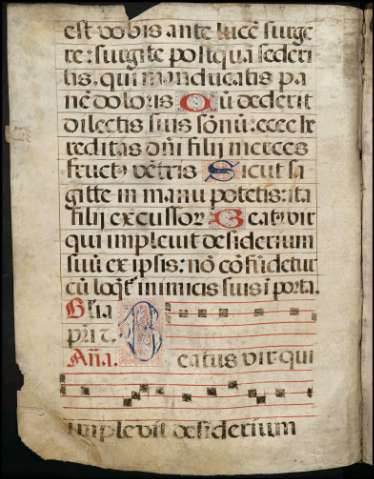 est vobis ante lucē surge
re: surgite postquā sederi
tis, qui manducatis pa
nē doloris Cū dederit
dilectis suis sōnū: ecce he
reditas dn̄i filij merces
fruct⁹ vētris Sicut sa
gitte in manu potētis: ita
filij excussoꝝ Beat⁹ vir
qui implevit desiderium
suū ex ipsis: nō cōfūdetur
cū loqt̄ inimicis suis ī porta.
Gl̄ia
pr̄i ⁊.
Añ̄a. Beatus vir qui
implevit desiderium